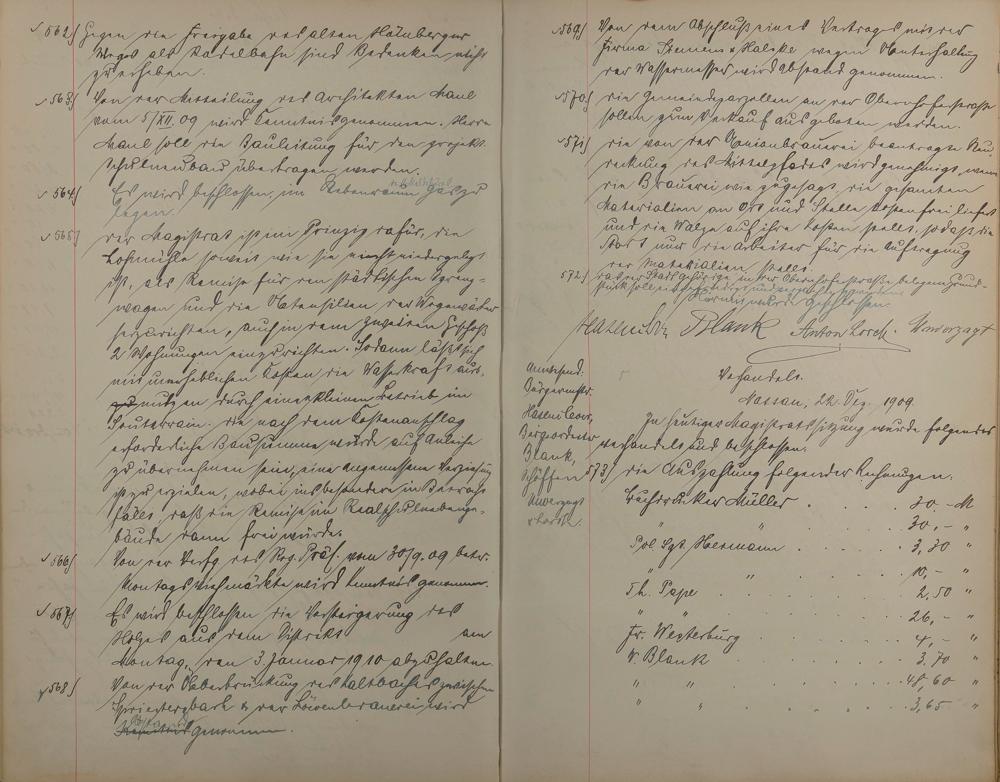 562) Gegen die Freigabe des alten Nürnberger
Weges als Rodelbahn sind Bedenken nicht
zu erheben.
563) Von der Mitteilung des Architekten Maul
vom 5/XII. 09 wird Kenntnis genommen. Herrn
Maul soll die Bauleitung für den projekt.
Schulneubau übertragen werden.
564) Es wird beschlossen, im Nebenraum Gas zu
legen.
565) Der Magistrat ist im Prinzip dafür, die
Lohmühle soweit wie sie nicht niedergelegt
ist, als Remise für den städtischen Spreng-
wagen und die Utensilien des Wegewärter
herzurichten, auch in dem zweiten Geschoß
2 Wohnungen einzurichten. Sodann läßt sich
mit unerheblichen Kosten die Wasserkraft aus-
nutzen durch einen kleinen Betrieb im
Souterrain. Die nach dem Kostenanschlag
erforderliche Bausumme würde auf Anleihe
zu übernehmen sein, eine angemessene Verzinsung
ist zu erzielen, wobei insbesondere in Betracht
fällt, daß die Remise im Realschulneben-
bäude dann frei würde.
566) Von der Verfg. des Reg. Präs. vom 30/9. 09 betr.
Montagsviehmärkte wird Kenntnis genommen.
567) Es wird beschlossen die Versteigerung des
Holzes aus dem Distrikt am
Montag, den 3. Januar 1910 abzuhalten.
568) Von der Überbrückung des Kaltbaches zwischen
& der Löwenbrauerei wird
genommen.
569) Von dem Abschluß eines Vertrages mit der
Firma Siemens & Halske wegen Unterhaltung
der Wassermesser wird Abstand genommen.
570) Die Gemeindeparzellen an der Obernhoferstraße
sollen zum Verkauf ausgeboten werden.
571) Die von der Unionbrauerei beantragte Neu-
deckung des Mittelpfades wird genehmigt, wenn
die Brauerei wie zugesagt, die gesamten
Materialien an Ort und Stelle kostenfrei liefert
und die Walze auf ihre Kosten stellt, sodaß die
Stadt nur die Arbeiter für die Auftragung
der Materialien stellt.
572) Das der Stadt gehörige in der Obernhoferstraße belegene Grund-
stück soll
geschlossen
Hasenclever Blank Anton Lorch. Unverzagt
Anwesend:
Bürgermstr.
Hasenclever,
Beigeordneter
Blank,
Schöffen
Unverzagt
& Lorch.
Verhandelt.
Nassau, 22. Dez. 1909.
In heutiger Magistratssitzung wurde folgendes
verhandelt und beschlossen:
573) Die Auszahlung folgender Rechnungen:
Buchdrucker Müller . . . . 70,- M
" " . . . . 30,- "
Pol. Sgt. Hermann . . . . 3,30 "
" " . . . . 10,- "
Th. Pape . . . . 2,50 "
" " . . . . 26,- "
Fr. Westerburg . . . . 4,- "
W. Blank . . . . 3,70 "
" " . . . . 48,60 "
" " . . . . 3,65 "